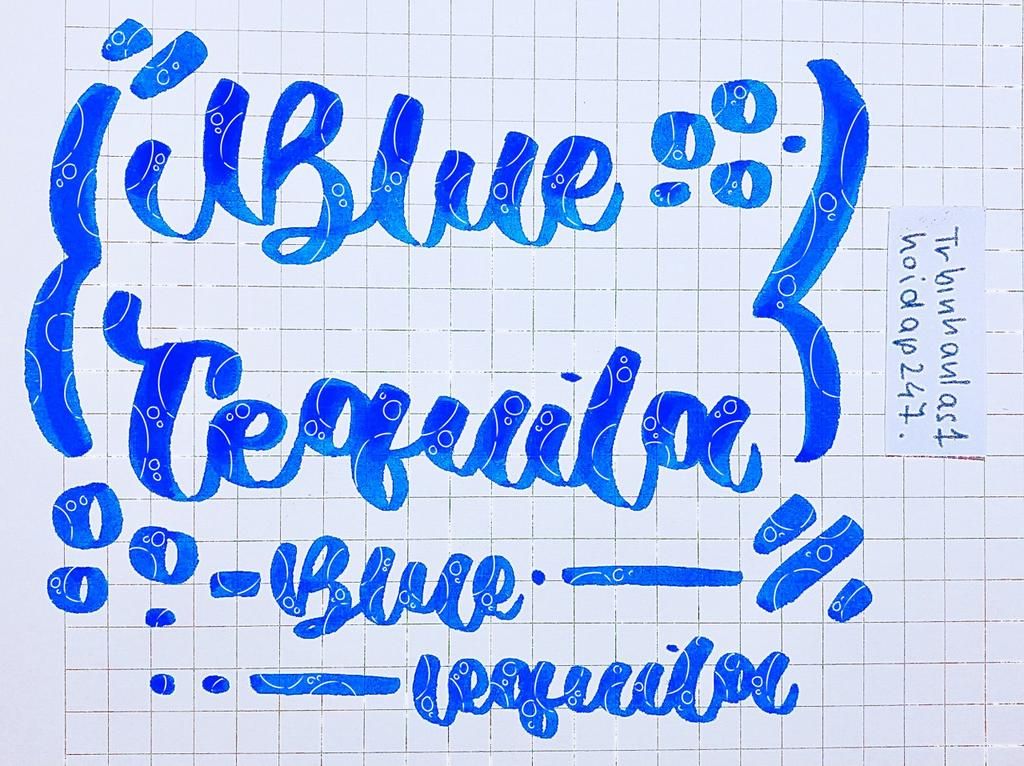 Blue
Tequila
Blue
Tequila
Trbinhanlast
hoidap247.